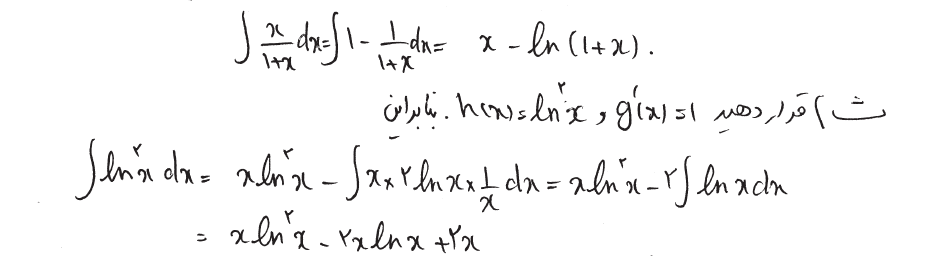 ∫ x/(1+x) dx = ∫ 1 - 1/(1+x) dx = x - ln(1+x).
ث) قرار دهید g'(x)=1 و h(x)=ln²x. بنابراین
∫ ln²x dx = x ln²x - ∫ x × ۲ ln x × 1/x dx = x ln²x - ۲∫ ln x dx
= x ln²x - ۲x ln x + ۲x